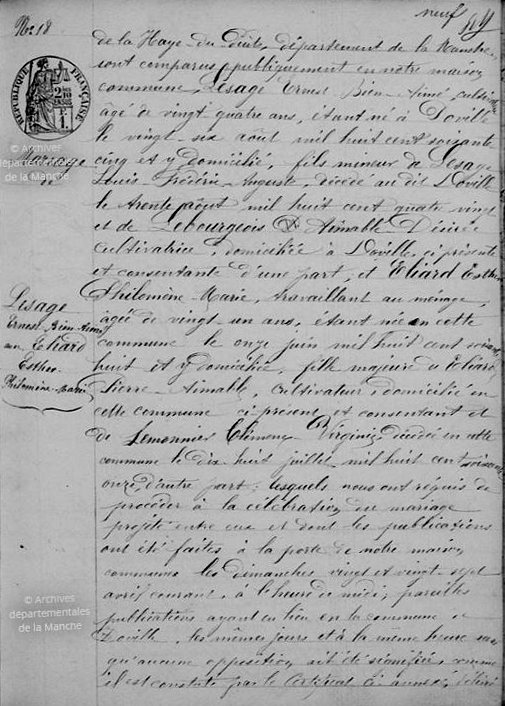 neuf
No 18
de la Haye-du-Puits, département de la Manche
sont comparus publiquement en notre maison
commune, Lesage Ernest Bien-Aimé, cultivateur
âgé de vingt quatre ans, étant né à Doville
le vingt-six août mil huit cent soixante
cinq et y domicilié, fils mineur de Lesage
Louis-Frédéric-Auguste, décédé au dit Doville
le trente août mil huit cent quatre vingt
et de Lebourgeois Aimable-Désirée
cultivatrice, domiciliée à Doville, ci présente
et consentante d'une part, et Eliard Esther
Philomène-Marie, travaillant au ménage,
âgée de vingt-un ans, étant née en cette
commune le onze juin mil huit cent soixante
huit et y domiciliée, fille majeure de Eliard
Pierre-Aimable, cultivateur, domicilié en
cette commune ci présent et consentant et
de Lemonnier Clémence Virginie, décédée en cette
commune le dix huit juillet mil huit cent soixante
onze, d'autre part; lesquels nous ont requis de
procéder à la célébration du mariage
projeté entre eux et dont les publications
ont été faites à la porte de notre maison
commune les dimanches vingt et vingt-sept
avril courant, à l'heure de midi; pareilles
publications ayant eu lieu en la commune de
Doville, les mêmes jours et à la même heure sans
qu'aucune opposition ait été signifiée, comme
il est constaté par le certificat ci annexé, délivré
RÉPUBLIQUE FRANÇAISE
Lesage
Ernest Bien-Aimé
au Eliard
Esther
Philomène-Marie
© Archives
départementales
de la Manche
© Archives
départementales
de la Manche